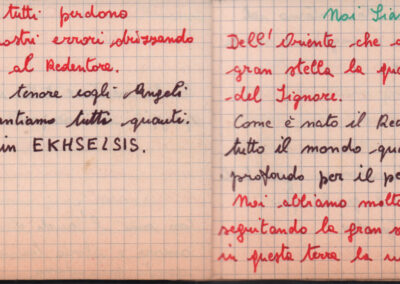 tutti perdono
ostri errori drizzando
al Redentore.
tenore cogli Angeli
antiamo tutti quanti.
in EKHSELSIS.
Noi Sia
Dell' Oriente che a
gran stella la qua
del Signore.
Come è nato il Red
tutto il mondo qua
profondo per il pe
Noi abbiamo molto
seguitando la gran s
in questa terra la n